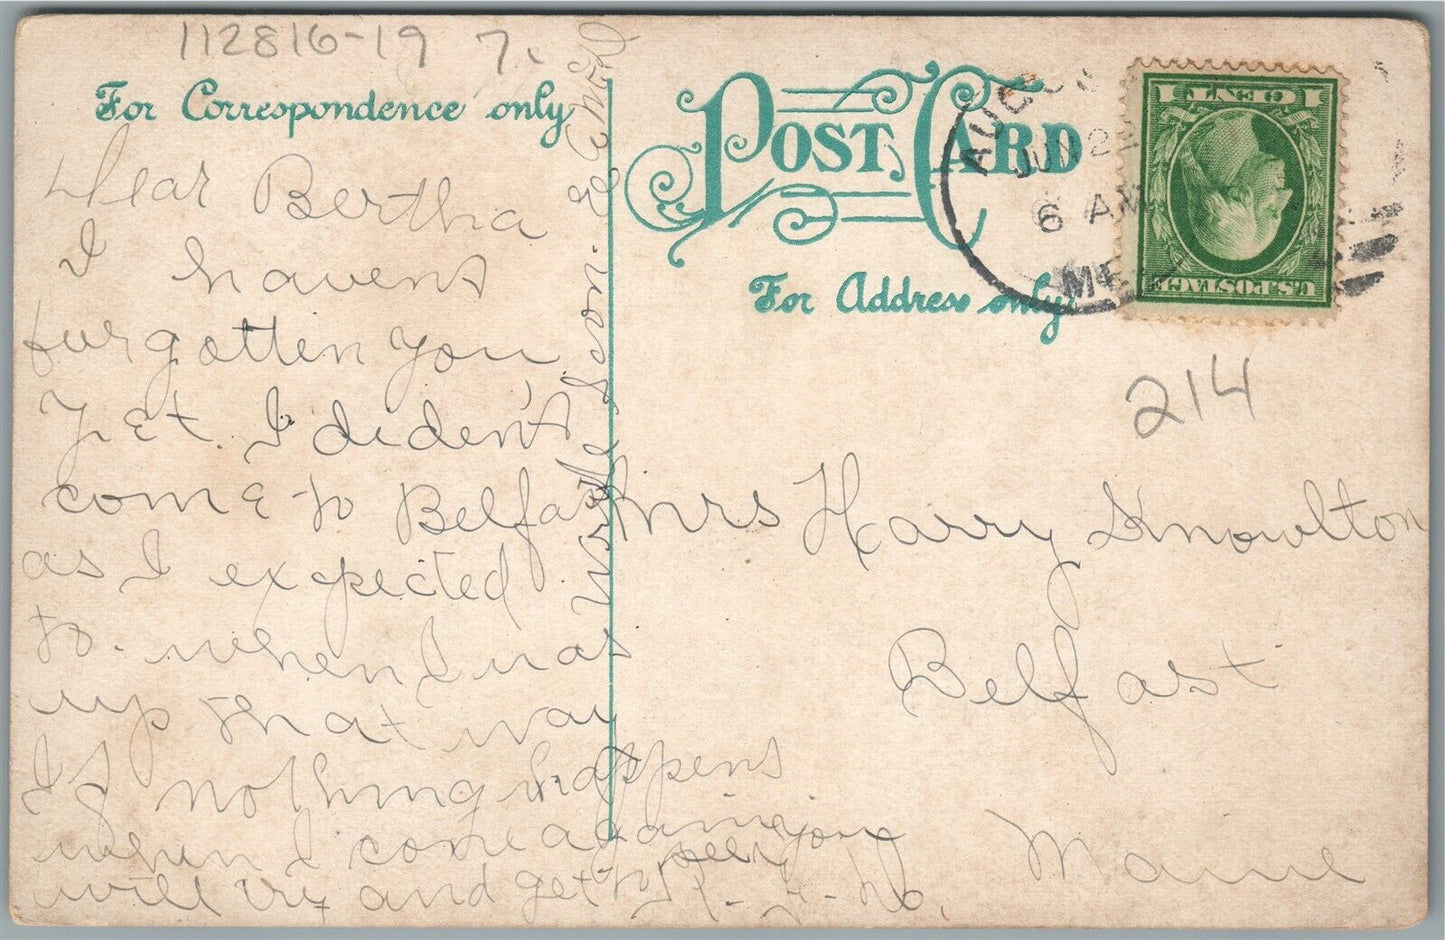 112816-19 7.
For Correspondence only
Dear Bertha
I havent
furgotten you
yet. I dident
come to Belfast
as I expected
to. when I was
up that way
If nothing happens
when I come again
will try and get to see you
write soon.
POST CARD
For Address only
AUGU
JUN 2
6 AM
ME
U.S. POSTAGE
1 CENT 1
214
Mrs Harry Knowlton
Belfast
Maine